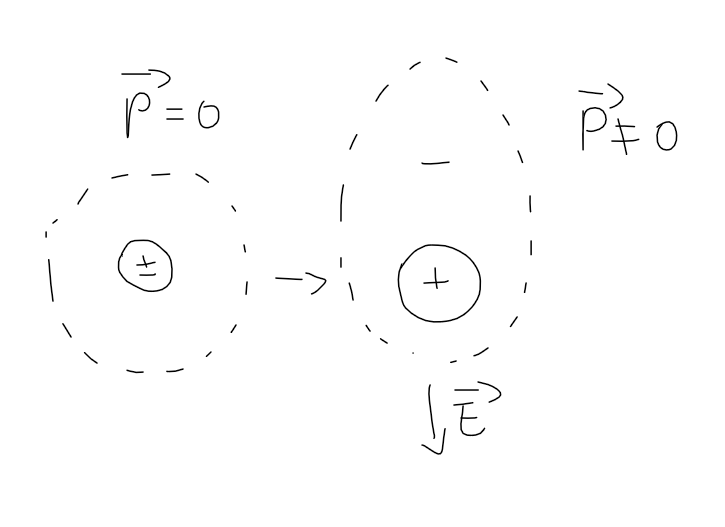 P⃗ = 0
P⃗ ≠ 0
−
±
+
E⃗